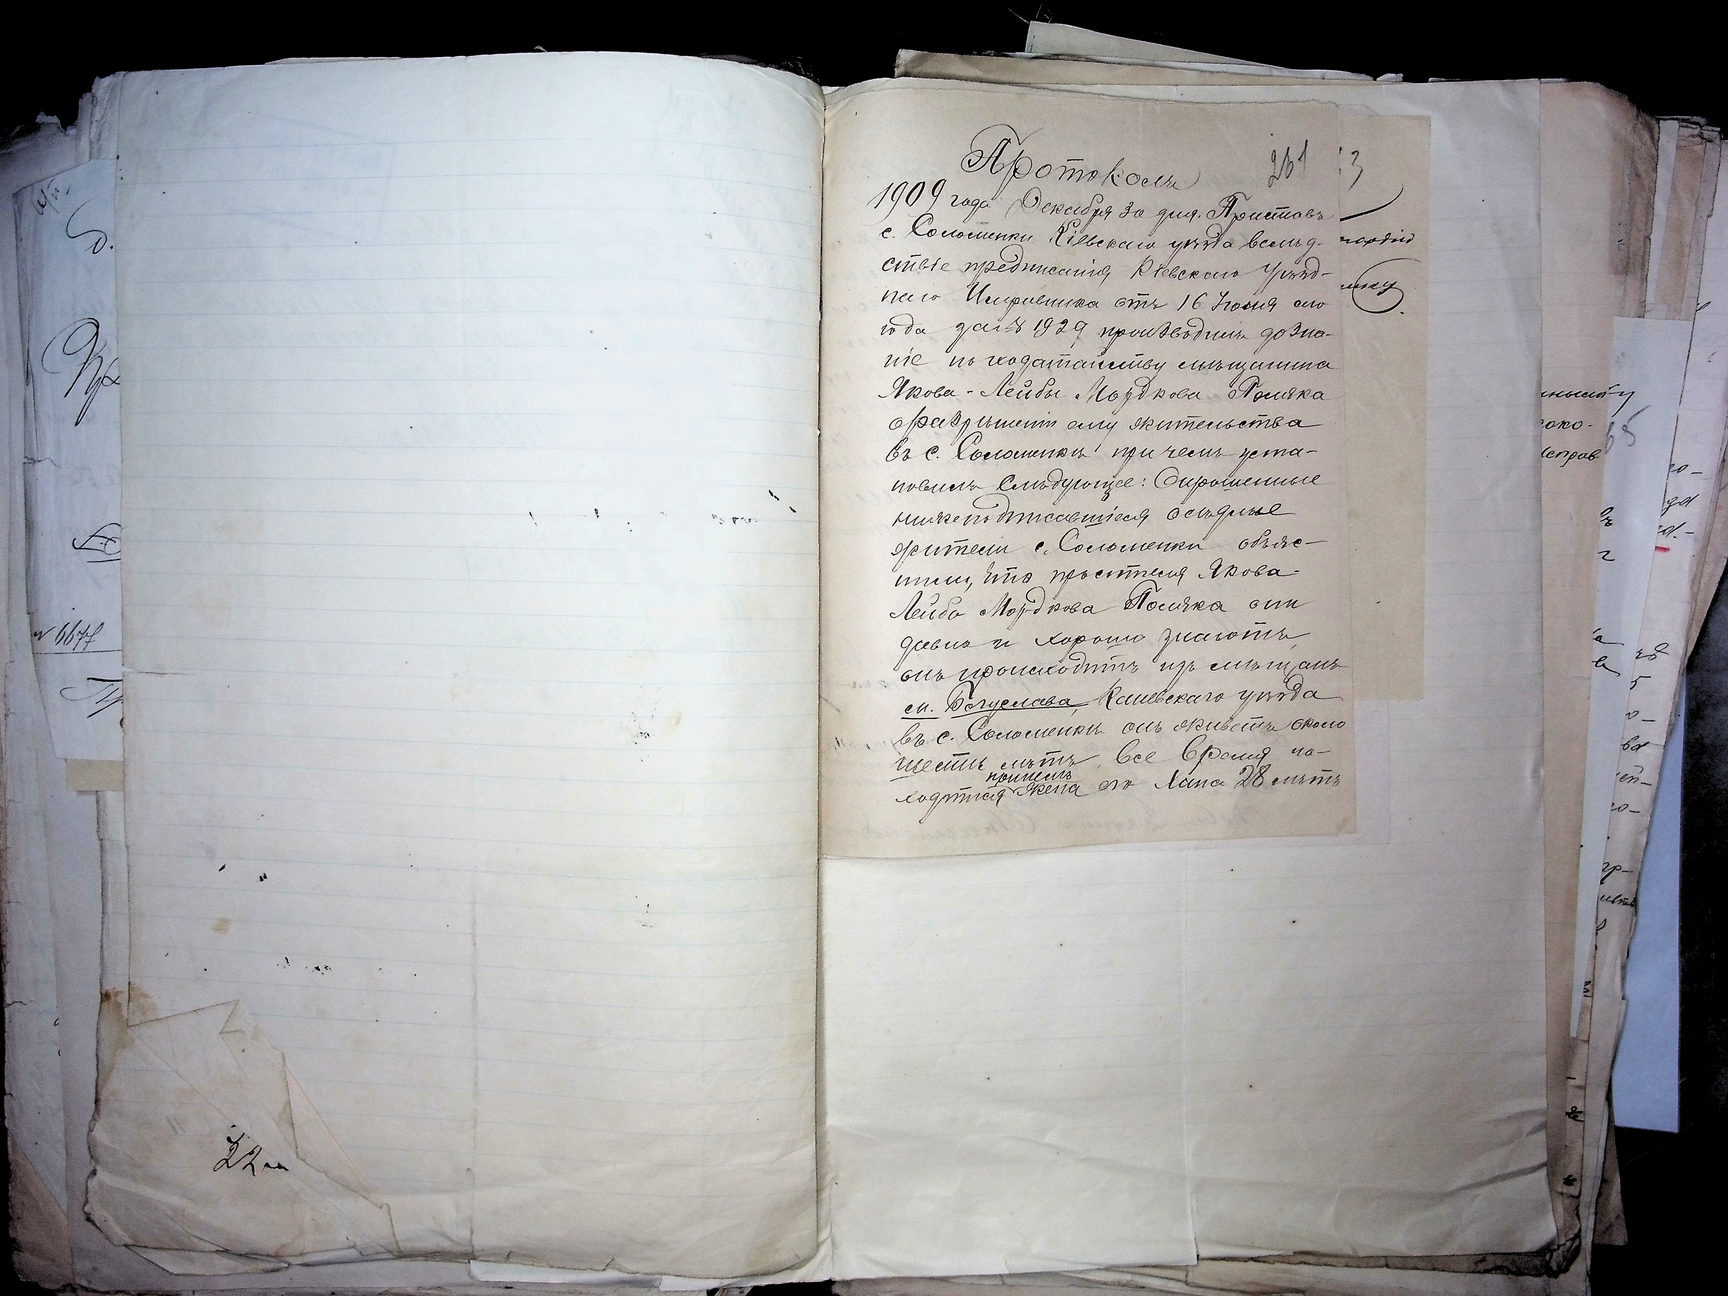 261
Протоколъ
1909 года Декабря 30 дня. Приставъ
с. Соломенки Кіевскаго уѣзда вслѣд-
ствіе предписанія Кіевскаго Уѣзд-
наго Исправника отъ 16 Іюня сего
года за № 1929 производилъ дозна-
ніе по ходатайству мѣщанина
Якова-Лейбы Мордкова Поляка
о разрѣшеніи ему жительства
въ с. Соломенкѣ при чемъ уста-
новилъ слѣдующее: Опрошенные
нижеподписавшіеся осѣдлые
жители с. Соломенки объяс-
нили, что просителя Якова-
Лейба Мордкова Поляка они
давно и хорошо знаютъ,
онъ происходитъ изъ мѣщанъ
м. Богуслава, Каневскаго уѣзда
въ с. Соломенкѣ онъ живетъ около
шести лѣтъ, все время на-
ходится
жена его Хана 28 лѣтъ
22
6677